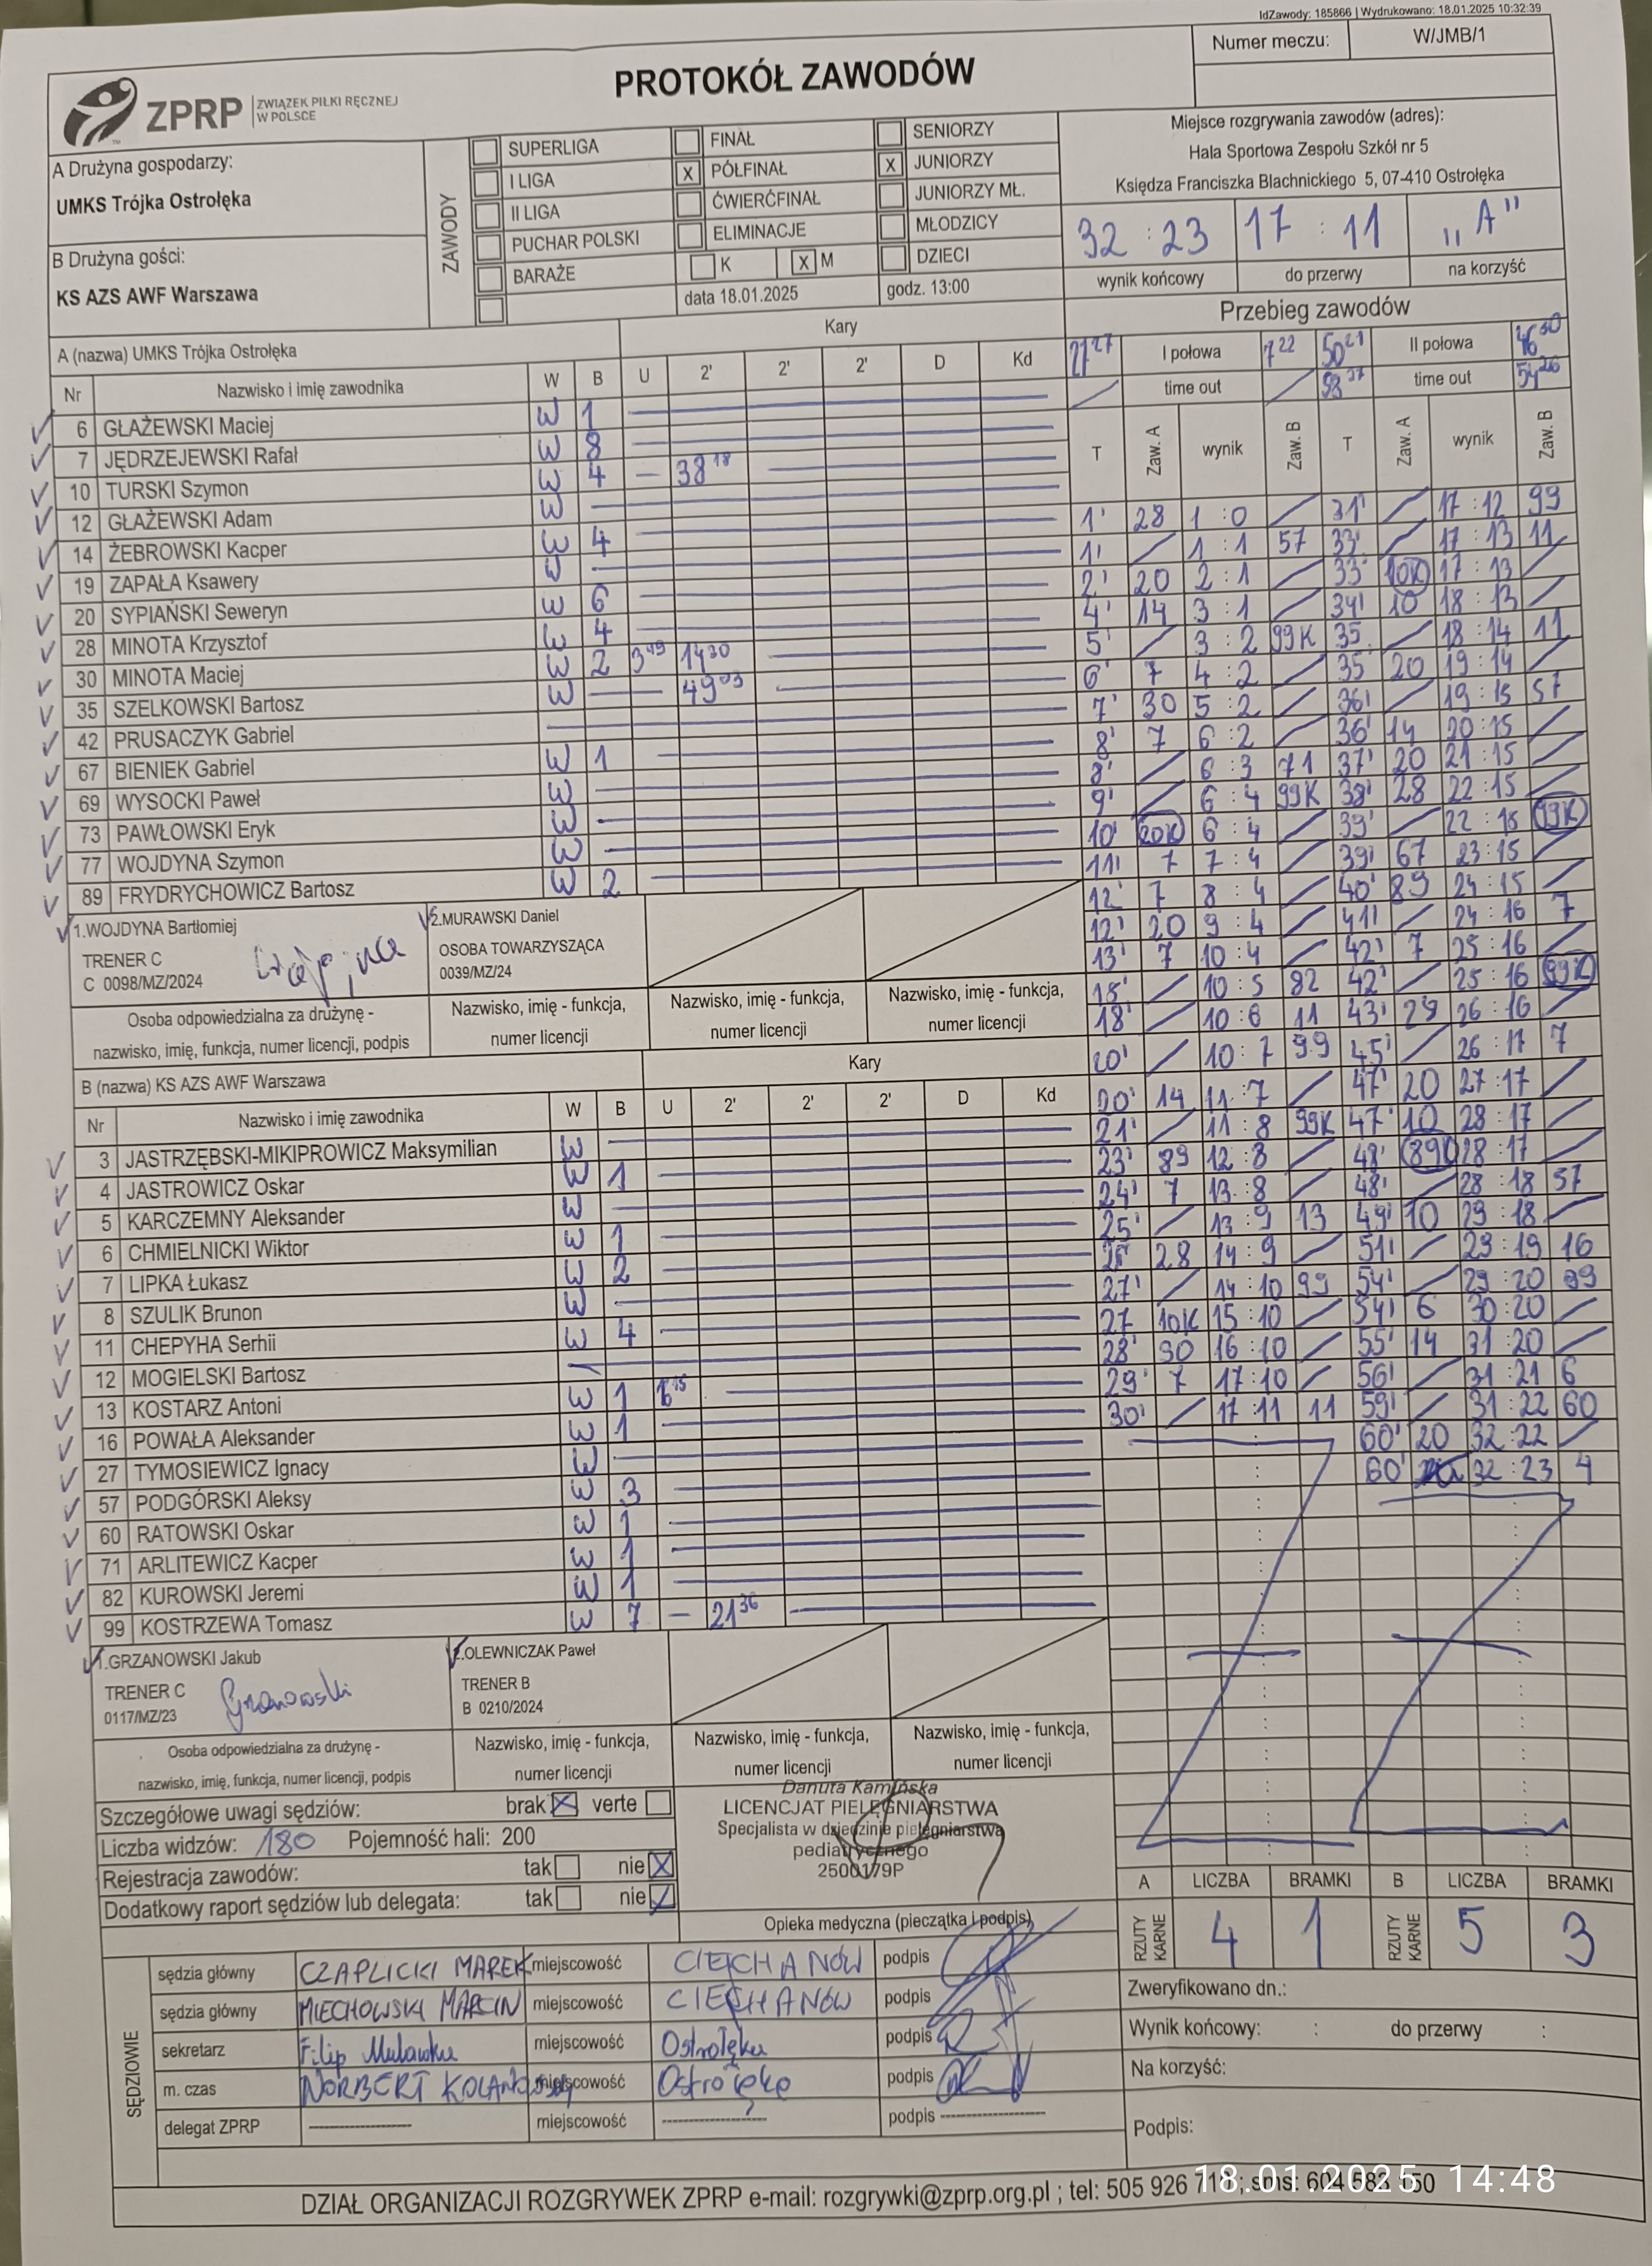 IdZawody: 185866 | Wydrukowano: 18.01.2025 10:32:39
Numer meczu: W/JMB/1
ZPRP ZWIĄZEK PIŁKI RĘCZNEJ W POLSCE
PROTOKÓŁ ZAWODÓW
A Drużyna gospodarzy:
UMKS Trójka Ostrołęka
B Drużyna gości:
KS AZS AWF Warszawa
ZAWODY
SUPERLIGA
I LIGA
II LIGA
PUCHAR POLSKI
BARAŻE
FINAŁ
X PÓŁFINAŁ
ĆWIERĆFINAŁ
ELIMINACJE
K X M
data 18.01.2025
SENIORZY
X JUNIORZY
JUNIORZY MŁ.
MŁODZICY
DZIECI
godz. 13:00
Miejsce rozgrywania zawodów (adres):
Hala Sportowa Zespołu Szkół nr 5
Księdza Franciszka Blachnickiego 5, 07-410 Ostrołęka
32 : 23 17 : 11 „A"
wynik końcowy do przerwy na korzyść
Przebieg zawodów
A (nazwa) UMKS Trójka Ostrołęka Kary
Nr Nazwisko i imię zawodnika W B U 2' 2' 2' D Kd
6 GŁAŻEWSKI Maciej W 1
7 JĘDRZEJEWSKI Rafał W 8
10 TURSKI Szymon W 4 — 38 18
12 GŁAŻEWSKI Adam W
14 ŻEBROWSKI Kacper W 4
19 ZAPAŁA Ksawery W
20 SYPIAŃSKI Seweryn W 6
28 MINOTA Krzysztof W 4
30 MINOTA Maciej W 2 3 49 14 30
35 SZELKOWSKI Bartosz W — 49 03
42 PRUSACZYK Gabriel
67 BIENIEK Gabriel W 1
69 WYSOCKI Paweł W
73 PAWŁOWSKI Eryk W
77 WOJDYNA Szymon W
89 FRYDRYCHOWICZ Bartosz W 2
1.WOJDYNA Bartłomiej
TRENER C
C 0098/MZ/2024
2.MURAWSKI Daniel
OSOBA TOWARZYSZĄCA
0039/MZ/24
Osoba odpowiedzialna za drużynę -
nazwisko, imię, funkcja, numer licencji, podpis
Nazwisko, imię - funkcja,
numer licencji
Nazwisko, imię - funkcja,
numer licencji
Nazwisko, imię - funkcja,
numer licencji
B (nazwa) KS AZS AWF Warszawa Kary
Nr Nazwisko i imię zawodnika W B U 2' 2' 2' D Kd
3 JASTRZĘBSKI-MIKIPROWICZ Maksymilian W
4 JASTROWICZ Oskar W 1
5 KARCZEMNY Aleksander W
6 CHMIELNICKI Wiktor W 1
7 LIPKA Łukasz W 2
8 SZULIK Brunon W
11 CHEPYHA Serhii W 4
12 MOGIELSKI Bartosz
13 KOSTARZ Antoni W 1
16 POWAŁA Aleksander W 1
27 TYMOSIEWICZ Ignacy W
57 PODGÓRSKI Aleksy W 3
60 RATOWSKI Oskar W 1
71 ARLITEWICZ Kacper W 1
82 KUROWSKI Jeremi W 1
99 KOSTRZEWA Tomasz W 7 — 21 36
1.GRZANOWSKI Jakub
TRENER C
0117/MZ/23
Grzanowski
2.OLEWNICZAK Paweł
TRENER B
B 0210/2024
Osoba odpowiedzialna za drużynę -
nazwisko, imię, funkcja, numer licencji, podpis
Nazwisko, imię - funkcja,
numer licencji
Nazwisko, imię - funkcja,
numer licencji
Nazwisko, imię - funkcja,
numer licencji
21 27 I połowa 7 22 50 21 II połowa 46 30
time out 58 37 time out 54 26
T Zaw. A wynik Zaw. B T Zaw. A wynik Zaw. B
1' 28 1 : 0 / 31' / 17 : 12 99
1' / 1 : 1 57 33' / 17 : 13 11
2' 20 2 : 1 / 33' 10K 17 : 13 /
4' 14 3 : 1 / 34' 10 18 : 13 /
5' / 3 : 2 99K 35 / 18 : 14 11
6' 7 4 : 2 / 35 20 19 : 14 /
7' 30 5 : 2 / 36' / 19 : 15 57
8' 7 6 : 2 / 36' 14 20 : 15 /
8' / 6 : 3 71 37' 20 21 : 15 /
9' / 6 : 4 99K 38' 28 22 : 15 /
10' 20K 6 : 4 / 39' / 22 : 15 99K
11' 7 7 : 4 / 39' 67 23 : 15 /
12' 7 8 : 4 / 40' 89 24 : 15 /
12' 20 9 : 4 / 41' / 24 : 16 7
13' 7 10 : 4 / 42' 7 25 : 16 /
18' / 10 : 5 82 42' / 25 : 16 99K
18' / 10 : 6 11 43' 28 26 : 16 /
20' / 10 : 7 99 45' / 26 : 17 7
20' 14 11 : 7 / 47' 20 27 : 17 /
21' / 11 : 8 99K 47' 10 28 : 17 /
23' 89 12 : 8 / 48' 89K 28 : 17 /
24' 7 13 : 8 / 48' / 28 : 18 57
25' / 13 : 9 13 49' 10 29 : 18 /
26' 28 14 : 9 / 51' / 29 : 19 16
27' / 14 : 10 99 54' / 29 : 20 99
27 10K 15 : 10 / 54' 6 30 : 20 /
28' 30 16 : 10 / 55' 14 31 : 20 /
29' 7 17 : 10 / 56' / 31 : 21 6
30' / 17 : 11 11 59' / 31 : 22 60
60' 20 32 : 22 /
60' 32 : 23 4
Szczegółowe uwagi sędziów: brak X verte
Liczba widzów: 180 Pojemność hali: 200
Rejestracja zawodów: tak nie X
Dodatkowy raport sędziów lub delegata: tak nie
Danuta Kamińska
LICENCJAT PIELĘGNIARSTWA
Specjalista w dziedzinie pielęgniarstwa
pediatrycznego
2500179P
Opieka medyczna (pieczątka i podpis)
A LICZBA BRAMKI B LICZBA BRAMKI
RZUTY KARNE 4 1 RZUTY KARNE 5 3
SĘDZIOWIE
sędzia główny CZAPLICKI MAREK miejscowość CIECHANÓW podpis
sędzia główny MIECHOWSKI MARCIN miejscowość CIECHANÓW podpis
sekretarz Filip miejscowość Ostrołęka podpis
m. czas NORBERT miejscowość Ostrołęka podpis
delegat ZPRP ---------- miejscowość ---------- podpis ----------
Zweryfikowano dn.:
Wynik końcowy: : do przerwy :
Na korzyść:
Podpis:
DZIAŁ ORGANIZACJI ROZGRYWEK ZPRP e-mail: rozgrywki@zprp.org.pl ; tel: 505 926 ; sms:
18.01.2025 14:48